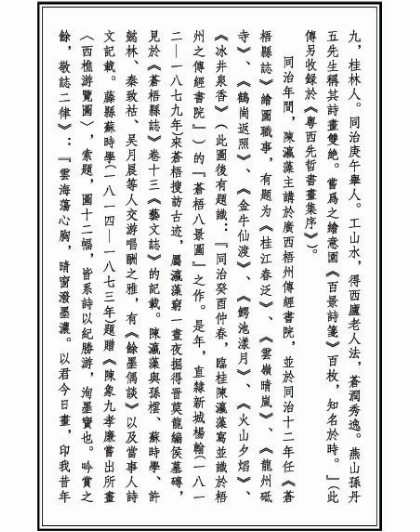 九，桂林人。同治庚午舉人。工山水，得西廬老人法，蒼潤秀逸。燕山孫丹
五先生稱其詩畫雙絶。嘗爲之繪意園《百景詩箋》百枚，知名於時。」（此
傳另收録於《粵西先哲書畫集序》）。
同治年間，陳瀛藻主講於廣西梧州傳經書院，並於同治十二年任《蒼
梧縣誌》繪圖職事，有題为《桂江春泛》、《雲嶺晴嵐》、《龍州砥
寺》、《鶴崗返照》、《金牛仙渡》、《鰐池漾月》、《火山夕熖》、
《冰井泉香》（此圖後有題識：『同治癸酉仲春，臨桂陳瀛藻寫並識於梧
州之傳經書院』）的『蒼梧八景圖』之作。是年，直隸新城楊翰（一八一
二—一八七九年來蒼梧搜訪古迹，屬瀛藻窮一晝夜掘得晉莫龍編侯墓磚，
見於《蒼梧縣誌》卷十三《藝文誌》的記載。陳瀛藻與孫檉、蘇時學、許
懿林、秦致祜、吴月晨等人交游唱酬之雅，有《餘墨偶談》以及當事人詩
文記載。藤縣蘇時學（一八一四—一八七三年）題贈《陳象九孝廉嘗出所畫
〈西樵游覽圖〉，索題，圖十二幅，皆系詩以紀勝游，洵墨寶也。吟賞之
餘，敬誌二律》：『雲海蕩心胸，晴窗潑墨濃。以君今日畫，印我昔年